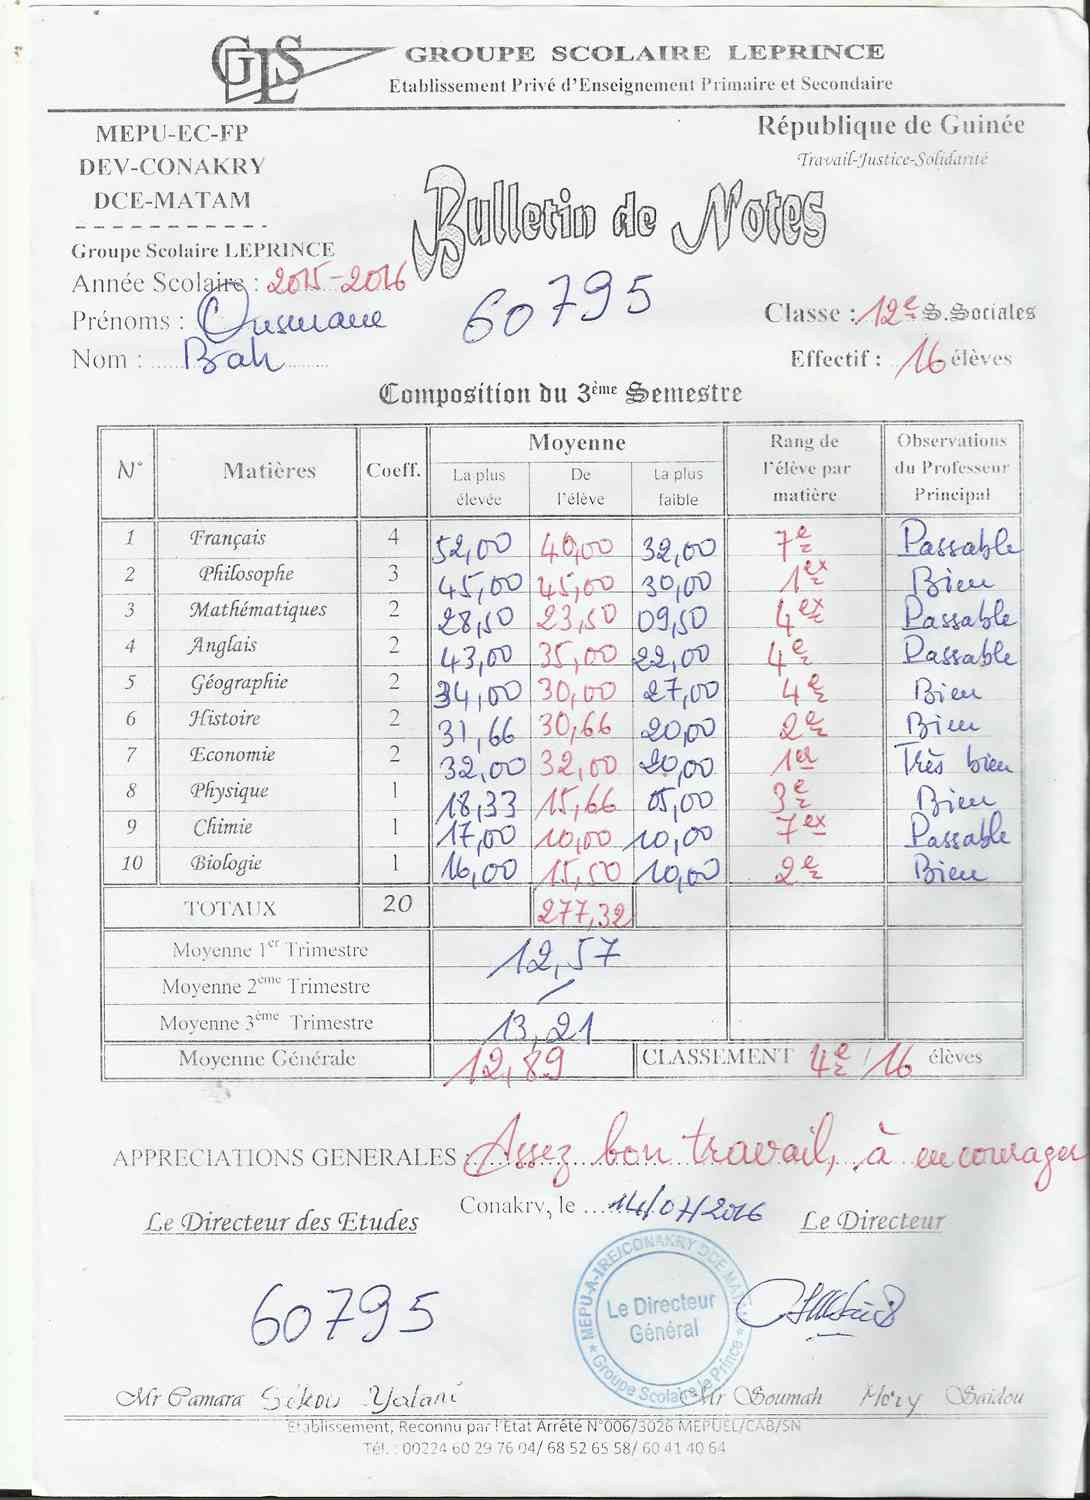 GLS
GROUPE SCOLAIRE LEPRINCE
Etablissement Privé d'Enseignement Primaire et Secondaire
MEPU-EC-FP
République de Guinée
DEV-CONAKRY
Travail-Justice-Solidarité
DCE-MATAM
Bulletin de Notes
Groupe Scolaire LEPRINCE
Année Scolaire : 2015-2016
60795
Prénoms : Ousmane
Classe : 12e S.Sociales
Nom : Bah
Effectif : 16 élèves
Composition du 3ème Semestre
N° Matières Coeff. Moyenne Rang de l'élève par matière Observations du Professeur Principal
La plus élevée De l'élève La plus faible
1 Français 4 52,00 40,00 32,00 7e Passable
2 Philosophe 3 45,00 45,00 30,00 1ex Bien
3 Mathématiques 2 28,50 23,50 09,50 4ex Passable
4 Anglais 2 43,00 35,00 22,00 4e Passable
5 Géographie 2 34,00 30,00 27,00 4e Bien
6 Histoire 2 31,66 30,66 20,00 2e Bien
7 Economie 2 32,00 32,00 20,00 1er Très bien
8 Physique 1 18,33 15,66 05,00 3e Bien
9 Chimie 1 17,00 10,00 10,00 7ex Passable
10 Biologie 1 16,00 15,50 10,00 2e Bien
TOTAUX 20 277,32
Moyenne 1er Trimestre 12,57
Moyenne 2ème Trimestre /
Moyenne 3ème Trimestre 13,21
Moyenne Générale 12,89 CLASSEMENT 4e/16 élèves
APPRECIATIONS GENERALES : Assez bon travail, à encourager
Conakry, le 14/07/2016
Le Directeur des Etudes
Le Directeur
MEPU-A-IRE/CONAKRY DCE MATAM
Le Directeur
Général
Groupe Scolaire le Prince
60795
Mr Camara Sékou Yalani
Mr Soumah Mory Saïdou
Etablissement, Reconnu par l'Etat Arrêté N°006/3026 MEPUEL/CAB/SN
Tél. : 00224 60 29 76 04/ 68 52 65 58/ 60 41 40 64